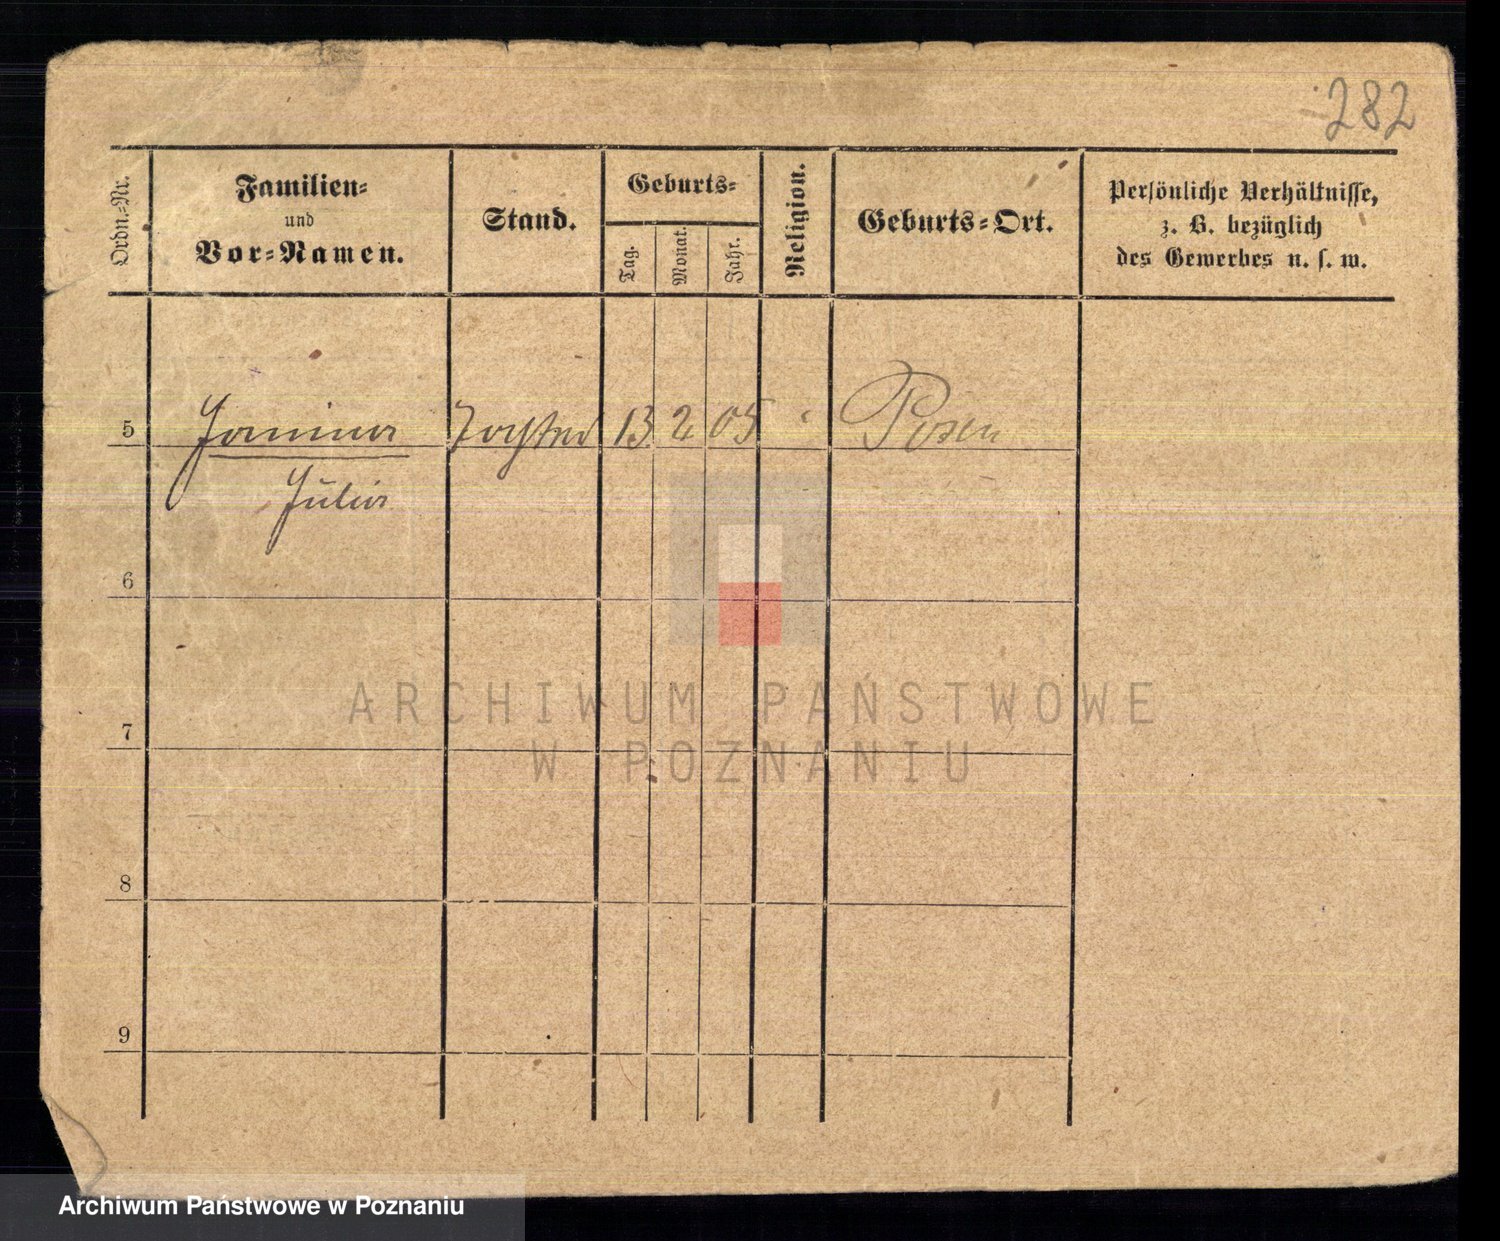 282
Ordn.-Nr.
Familien-
und
Vor-Namen.
Stand.
Geburts-
Tag.
Monat.
Jahr.
Religion.
Geburts-Ort.
Persönliche Verhältnisse,
z. B. bezüglich
des Gewerbes u. s. w.
5 Janina Tochter 13 2 05 " Posen
Julia
6
7
8
9
ARCHIWUM PAŃSTWOWE
W POZNANIU
Archiwum Państwowe w Poznaniu